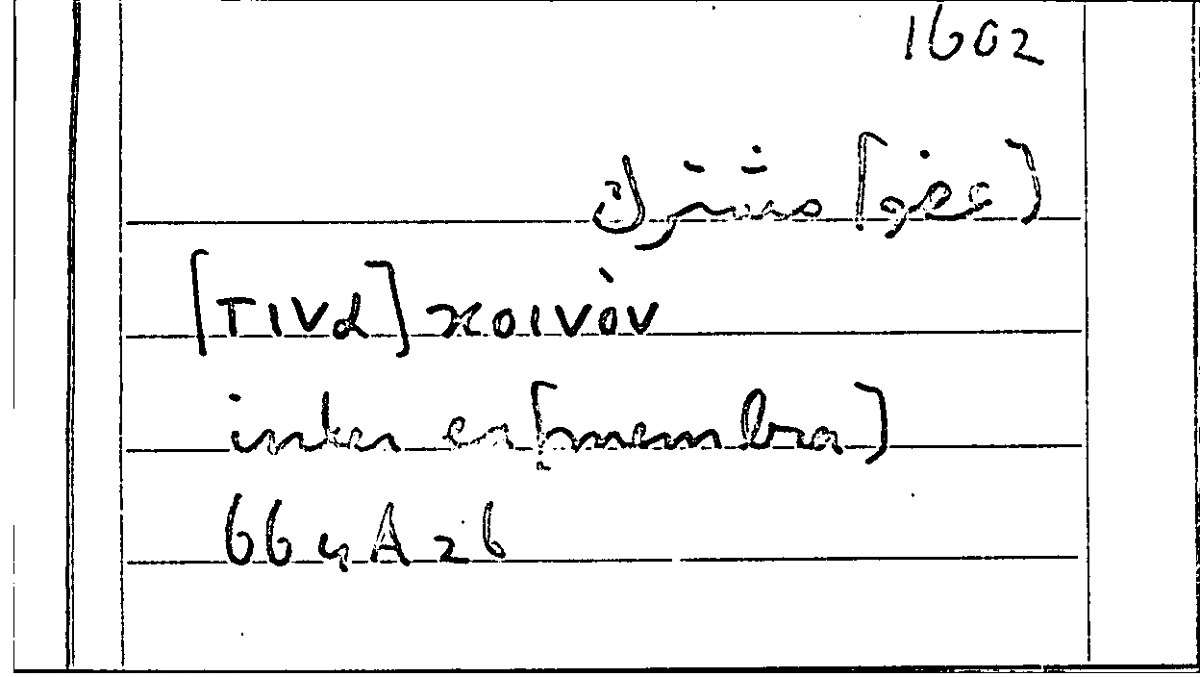 1602
مشترك
[τινα] κοινὸν
inter ea [membra]
664A26